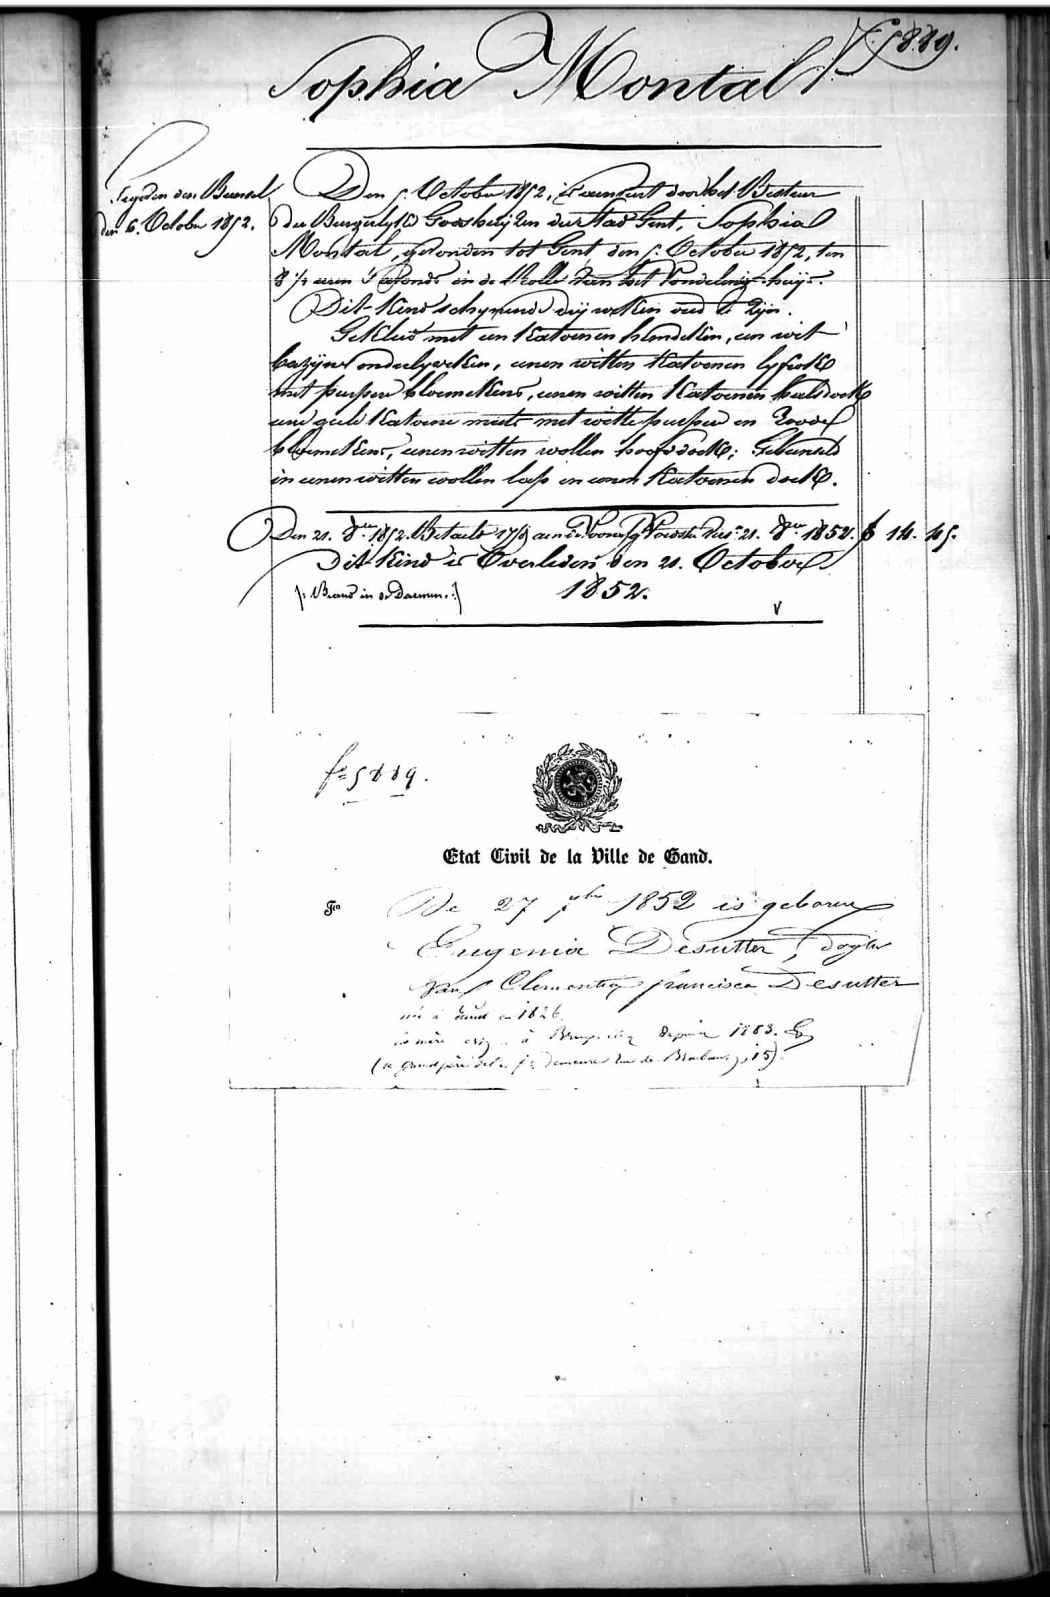 F.º 5889.
Sophia Montal
den 6. October 1852.
Den 5. October 1852, is aenveert door het Bestuer
der Burgerlyke Godshuijzen der Stad Gent, Sophia
Montal, gevonden tot Gent, den 5. October 1852, ten
8 ½ uren s'avonds in de Rolle van het Vondelingshuijs.
Dit Kind schynende dry weken oud te zijn.
Gekleed met een Katoenen hemdeken, een wit
bazijne onderlyveken, eenen witten Katoenen lyfrok
met purpere bloemekens, eenen witten Katoenen halsdoek
eene geele Katoene muts met witte purpere en roode
bloemekens, eenen witten wollen hoofddoek; Gebunseld
in eenen witten wollen lap en eenen Katoenen doek.
Den 21. 8bre 1852. Betaeld 21. 8bre 1852. 14. 45.
Dit Kind is Overleden den 21. October
1852.
(: Brand in de Darmen. :)
fº 5889.
Etat Civil de la Ville de Gand.
De 27 7bre 1852 is geboren
Eugenia Desutter, dogter
van Clementia francisca Desutter
née à Gand en 1826.
la mère à depuis 1883.
(le grand père demeure rue de Brabant, 15).